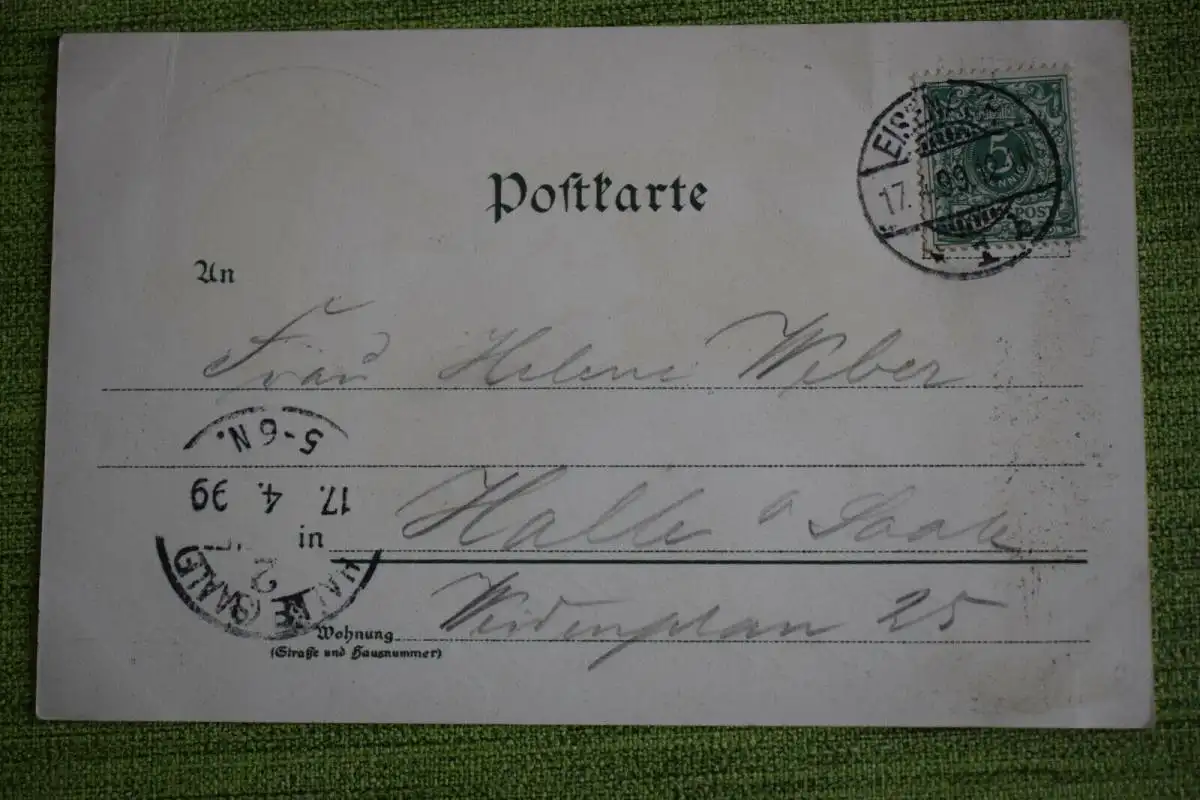 Postkarte
5
POST
17. 4.99.12
1
An
Frau Helene Weber
5-6N.
17. 4. 99
HALLE (SAALE)
2
in
Halle a Saale
Wohnung
(Straße und Hausnummer)
Weidenplan 25